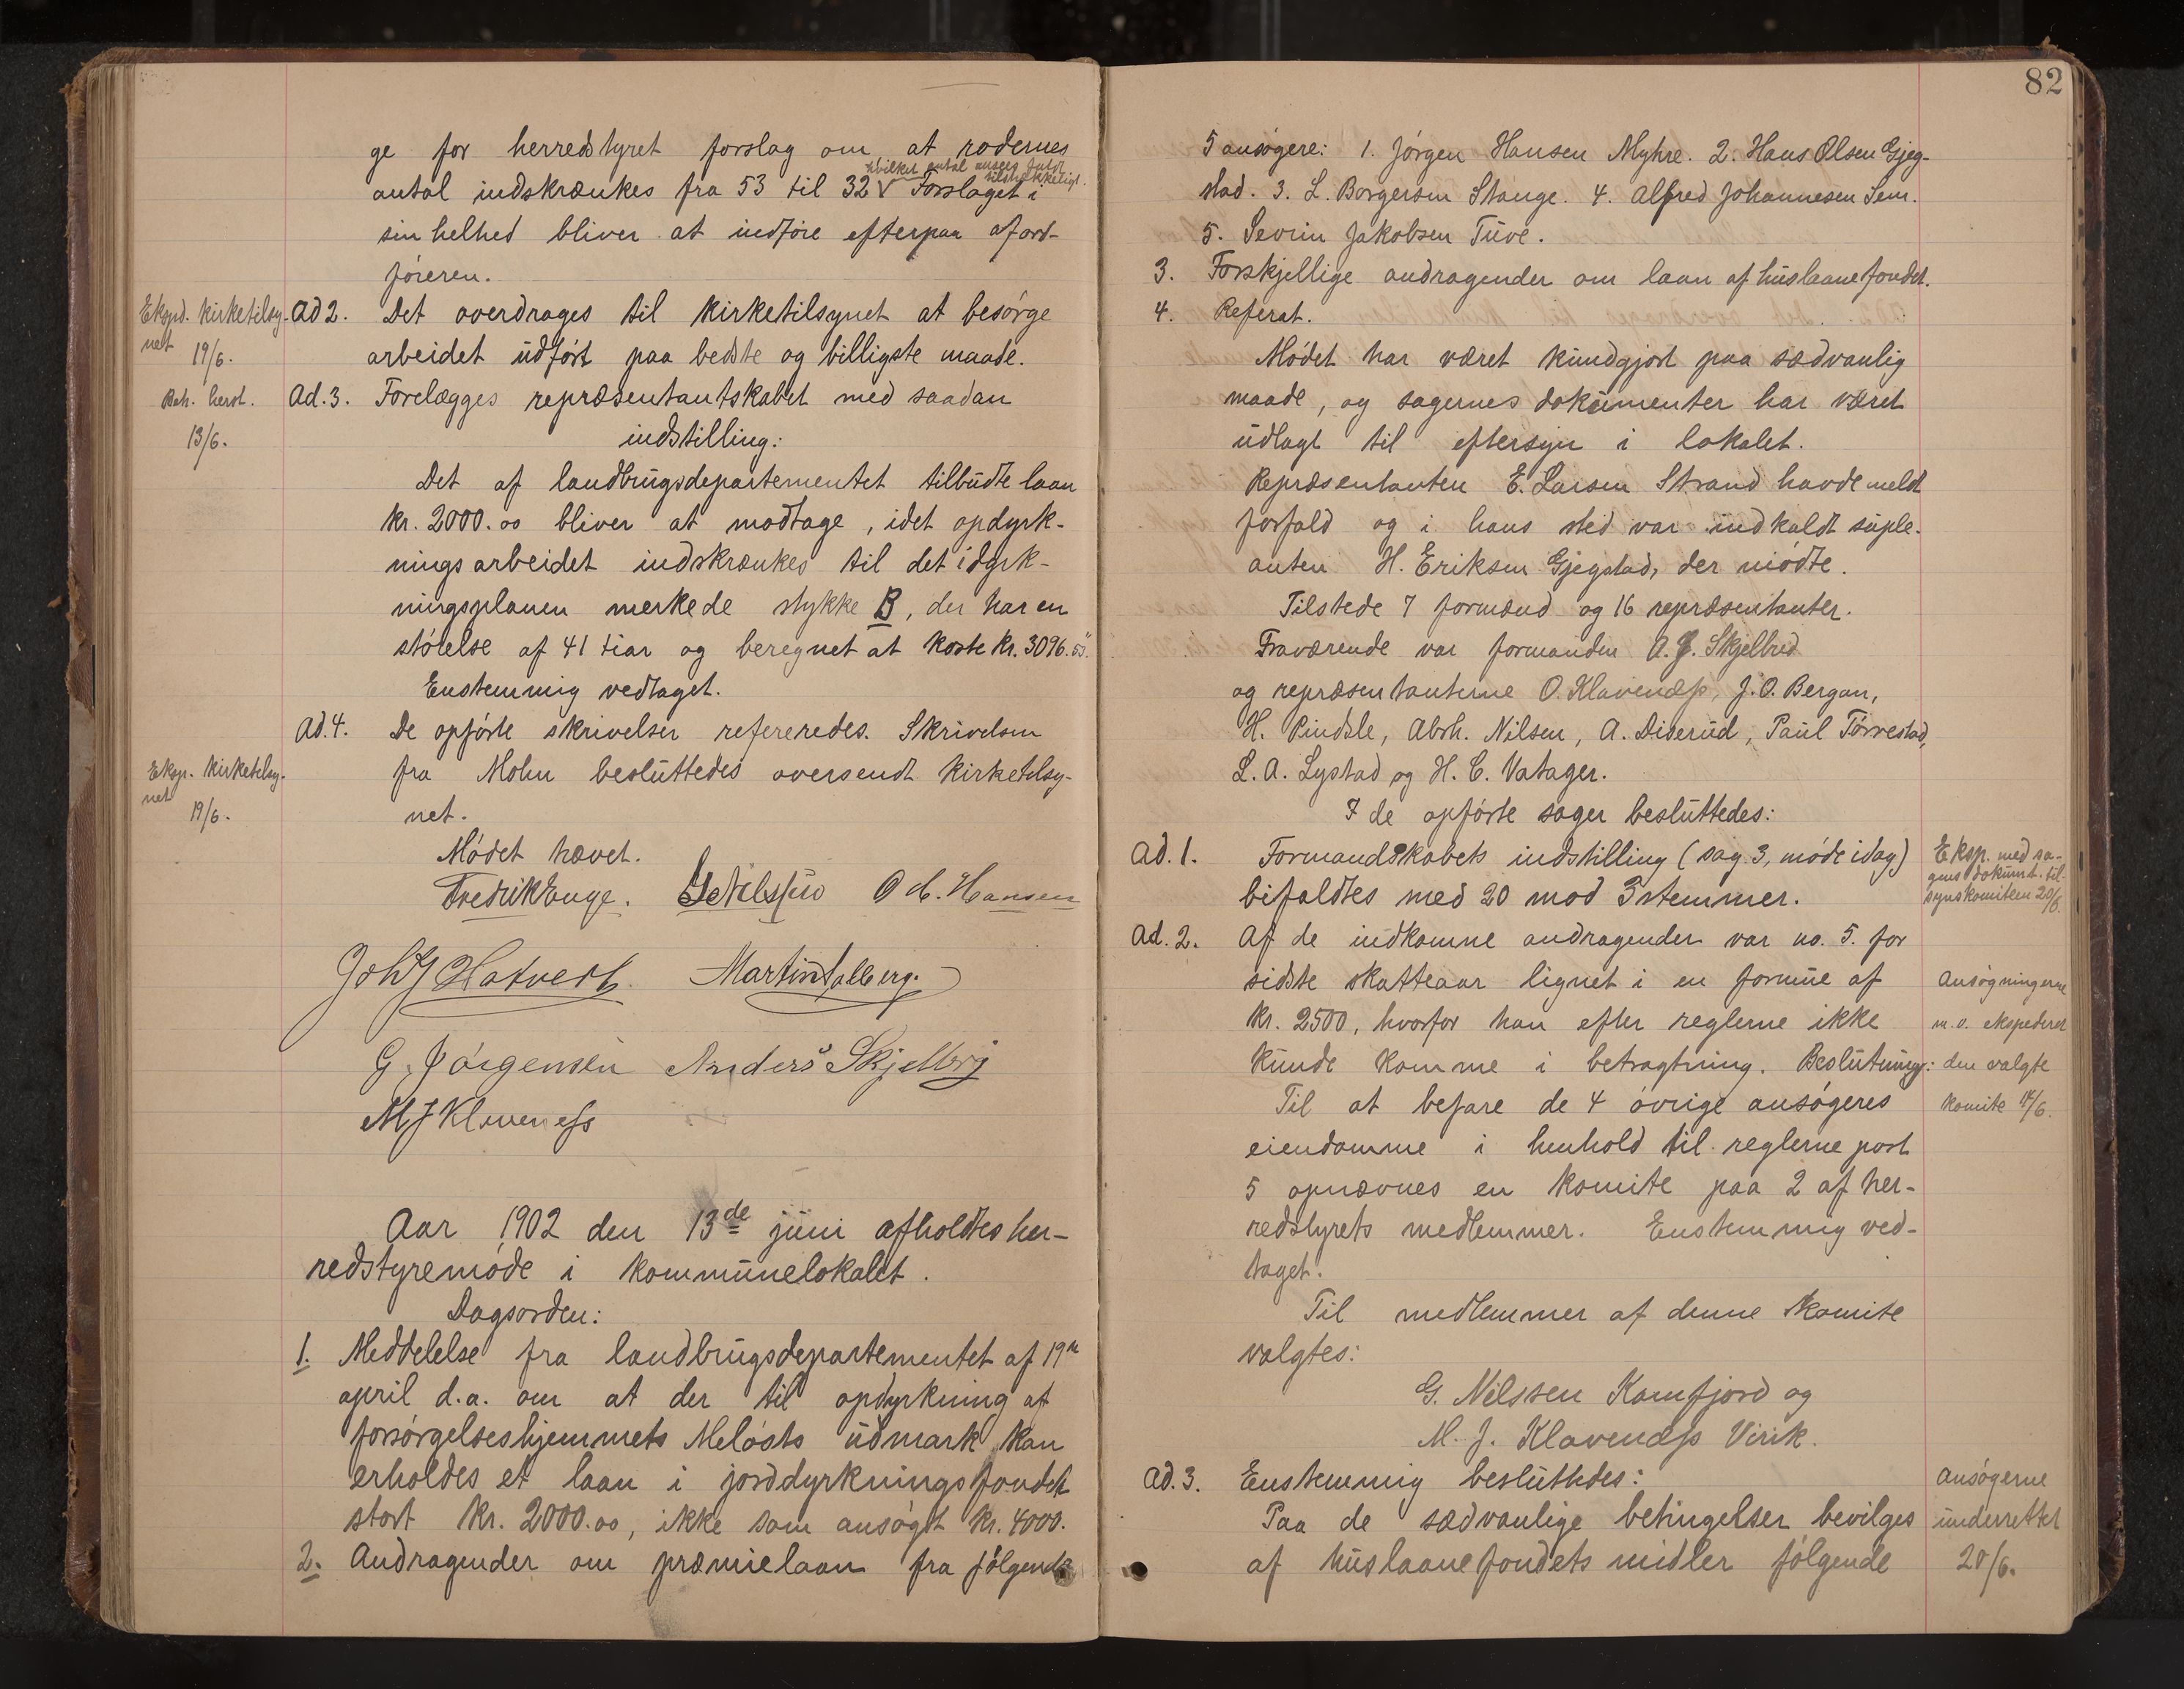 ge for herredstyret forslag om at rodernes
hvilket antal ansees fuldt tilstrækkeligt.
antal indskrænkes fra 53 til 32 V Forslaget i
sin helhed bliver at indføre efterpaa af ord-
føreren.
Eksped. kirketilsy-
net
19/6.
Ad 2. Det overdrages til kirketilsynet at besørge
arbeidet udført paa bedste og billigste maade.
Beh. herst.
13/6.
Ad. 3. Forelægges repræsentantskabet med saadan
indstilling:
Det af landbrugsdepartementet tilbudte laan
kr. 2000.00 bliver at modtage, idet opdyrk-
ningsarbeidet indskrænkes til det i dyrk-
ningsplanen merkede stykke B, der har en
størelse af 41 tiar og beregnet at koste kr. 3096.55.
Enstemmig vedtaget.
Ad. 4. De opførte skrivelser refereredes. Skrivelsen
Eksp. kirketilsy-
net
19/6.
fra Mohn besluttedes oversendt kirketilsy-
net.
Mødet hævet.
Fredrik Enge. O M. Hansen
Martin Dalberg.
G. Jørgensen Anders Skjelbrej
M J Klaveness
Aar 1902 den 13de juni afholdtes her-
redstyremøde i kommunelokalet.
Dagsorden:
1. Meddelelse fra landbrugsdepartementet af 19de
april d.a. om at der til opdyrkning af
forsørgelseshjemmets Meløsts udmark kan
erholdes et laan i jorddyrkningsfondet
stort kr. 2000.00, ikke som ansøgt kr. 4000.
2. Andragender om præmielaan fra følgende
82
5 ansøgere: 1. Jørgen Hansen Myhre. 2. Hans Olsen Gjeg-
stad. 3. L. Borgersen Stange. 4. Alfred Johannesen Sem.
5. Sevrin Jakobsen Tuve.
3. Forskjellige andragender om laan af huslaanefondet.
4. Referat.
Mødet har været kundgjort paa sædvanlig
maade, og sagernes dokumenter har været
udlagt til eftersyn i lokalet.
Repræsentanten E. Larsen Strand havde meldt
forfald og i hans sted var indkaldt suple-
anten H. Eriksen Gjegstad, der mødte.
Tilstede 7 formænd og 16 repræsentanter.
Fraværende var formanden A. J. Skjelbred
og repræsentanterne O. Klavenæss, J. O. Bergan,
H. Pindsle, Abrh. Nilsen, A. Diserud, Paul Tørrestad,
L. A. Lystad og H. C. Vatager.
I de opførte sager besluttedes:
Ad. 1. Formandskabets indstilling (sag 3, møde idag)
bifaldtes med 20 mod 3 stemmer.
Eksp. med sa-
gens dokumt. til-
synskomiteen 20/6.
Ad. 2. Af de indkomne andragender var no. 5. for
sidste skatteaar lignet i en formue af
kr. 2500, hvorfor han efter reglerne ikke
kunde komme i betragtning. Beslutning:
Til at befare de 4 øvrige ansøgeres
eiendomme i henhold til reglerne post
5 opnævnes en komite paa 2 af her-
redstyrets medlemmer. Enstemmig ved-
taget.
Ansøgningerne
m.v. ekspederet
den valgte
komite 14/6.
Til medlemmer af denne komite
valgtes:
G. Nilssen Kamfjord og
M. J. Klavenæss Virik.
Ad. 3. Enstemmig besluttedes:
Paa de sædvanlige betingelser bevilges
af huslaanefondets midler følgende
Ansøgerne
underrettet
20/6.